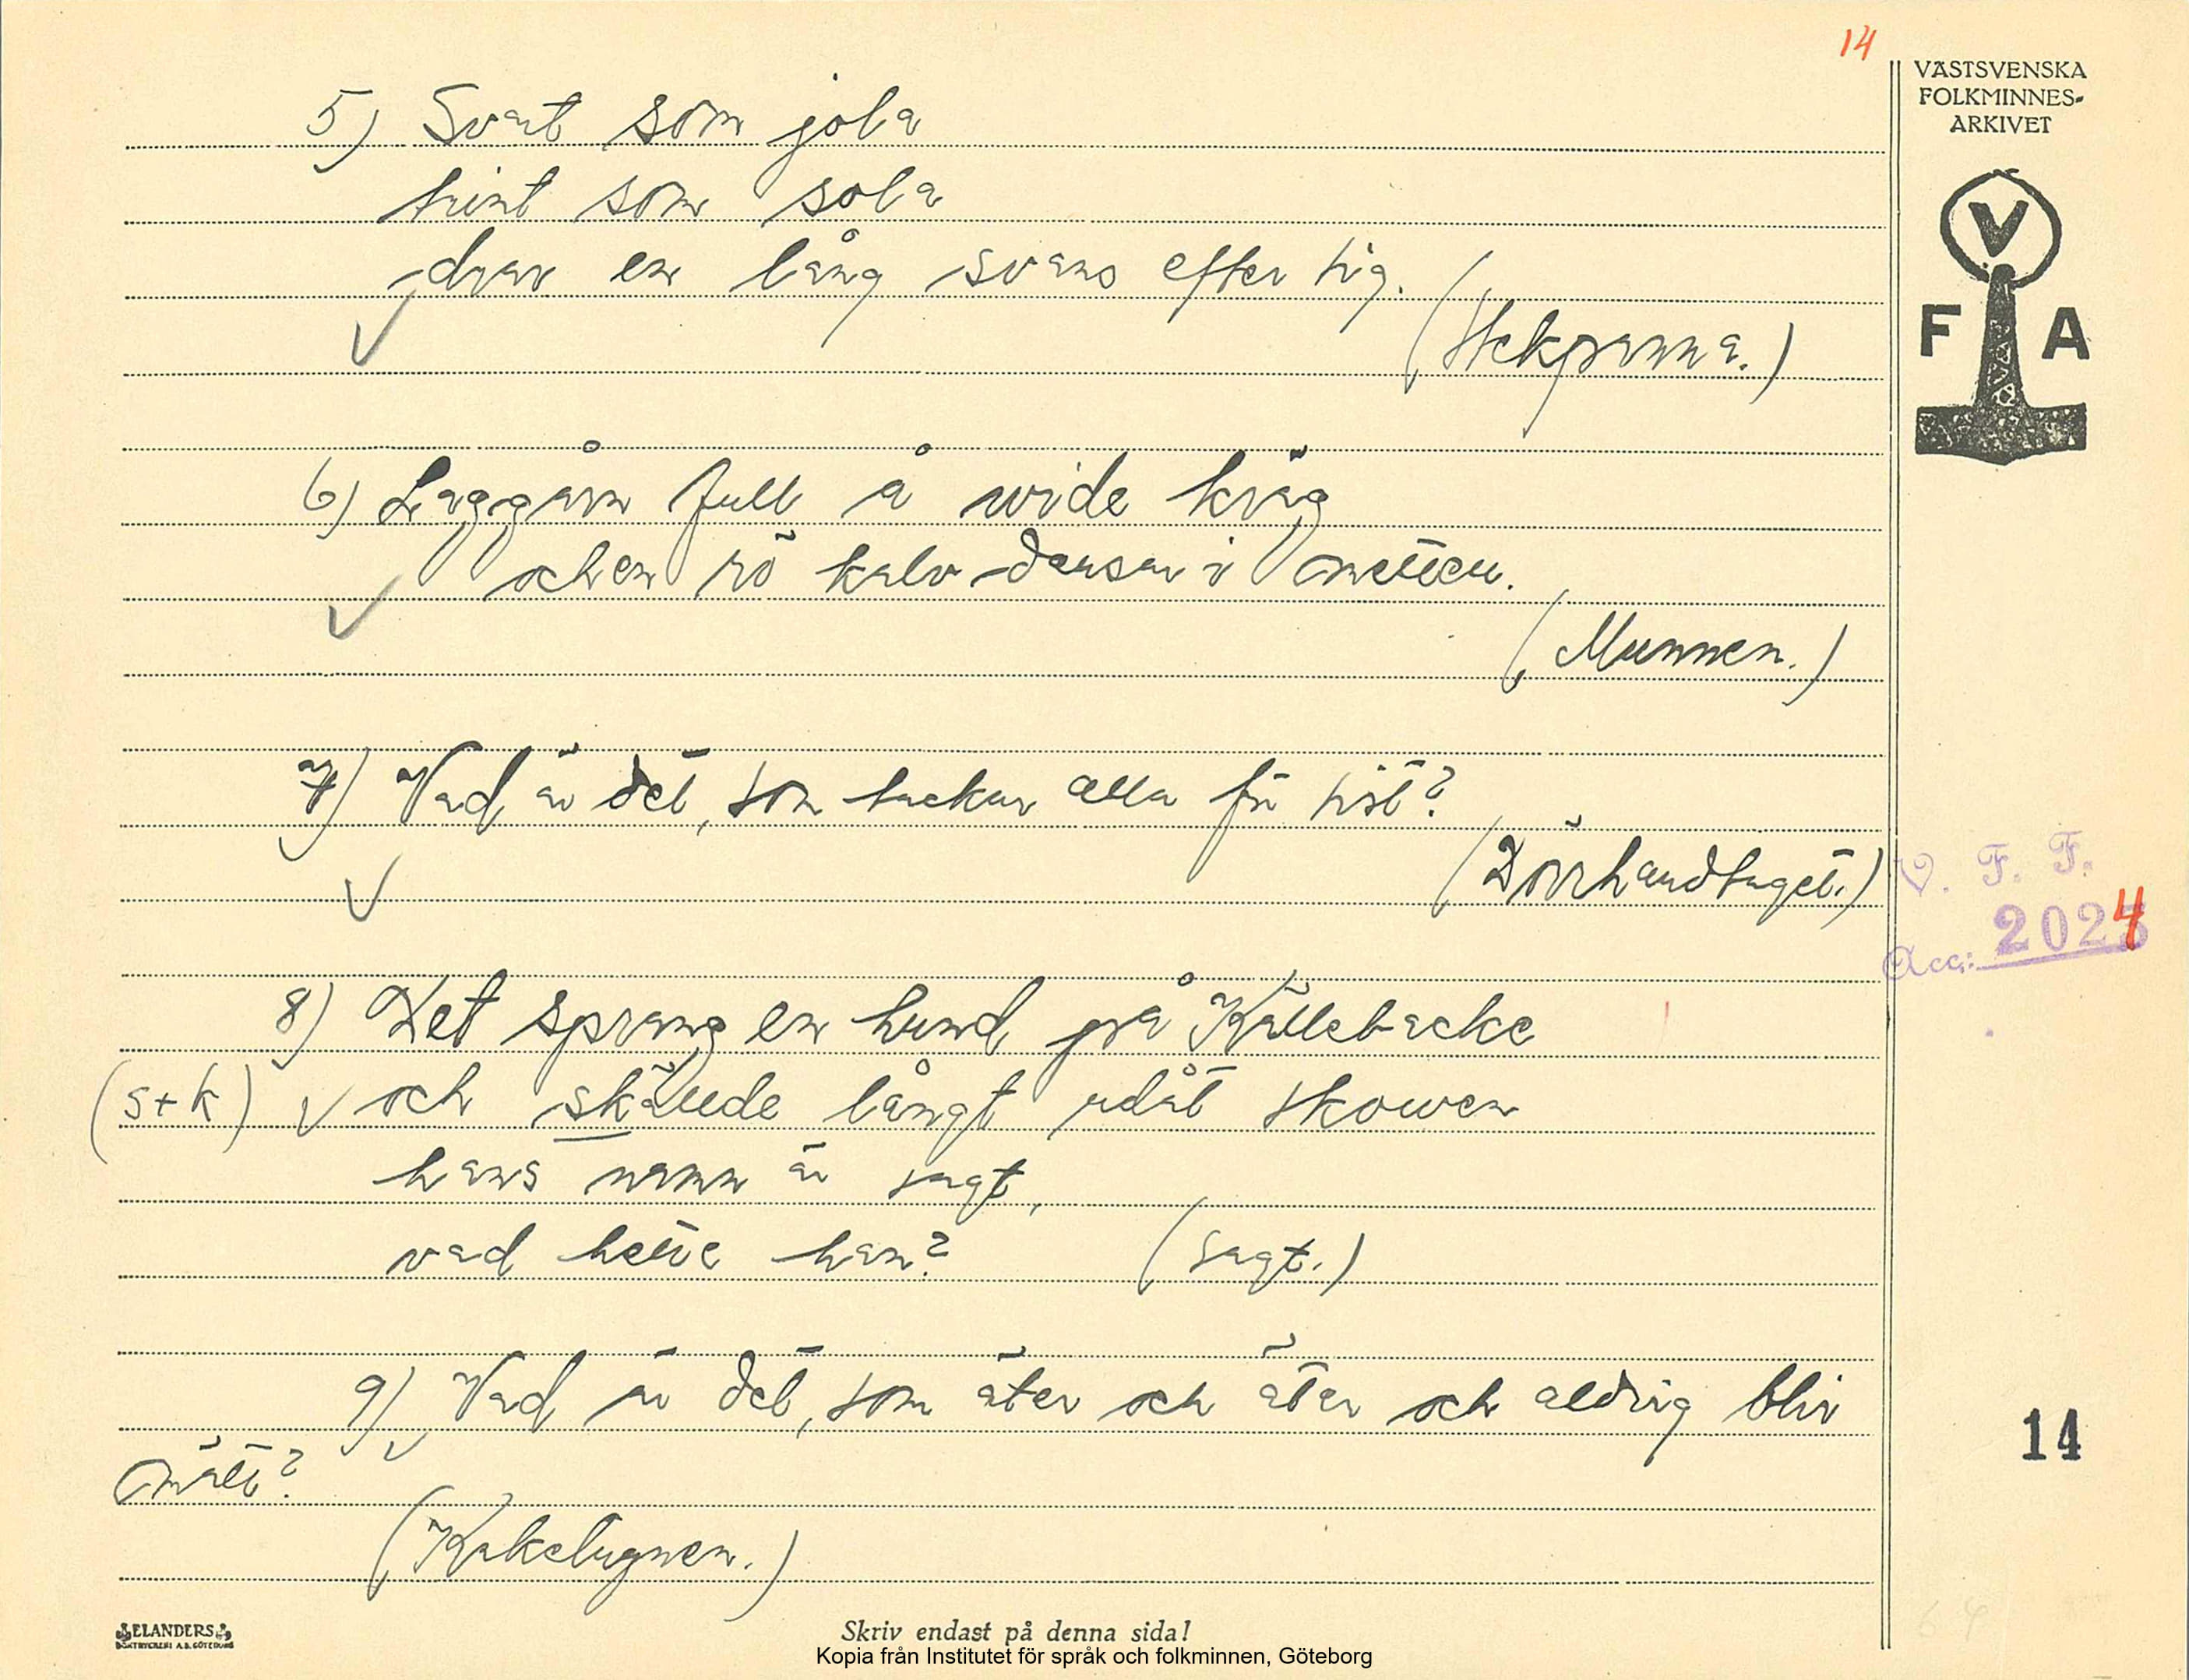 14
VÄSTSVENSKA
FOLKMINNES-
ARKIVET
V
F A
5) Svart som jola
trint som sola
drar en lång svans efter sig.
(Stekpanna.)
6) Laggårn full å wide kräg
och en rö kalv dansar i metten.
(Munnen.)
7) Vad är det, som tackar alla för sist?
(Dörrhandtaget.)
V. F. F.
Acc: 2024
8) Det sprang en hund på Källebacke
(s+k) och skällde långt udåt skowen
hans namn är sagt,
vad hette han? (Sagt.)
9) Vad är det, som äter och äter och aldrig blir
mätt?
(Kakelugnen.)
14
ELANDERS
BOKTRYCKERI A.B. GÖTEBORG
Skriv endast på denna sida!
Kopia från Institutet för språk och folkminnen, Göteborg